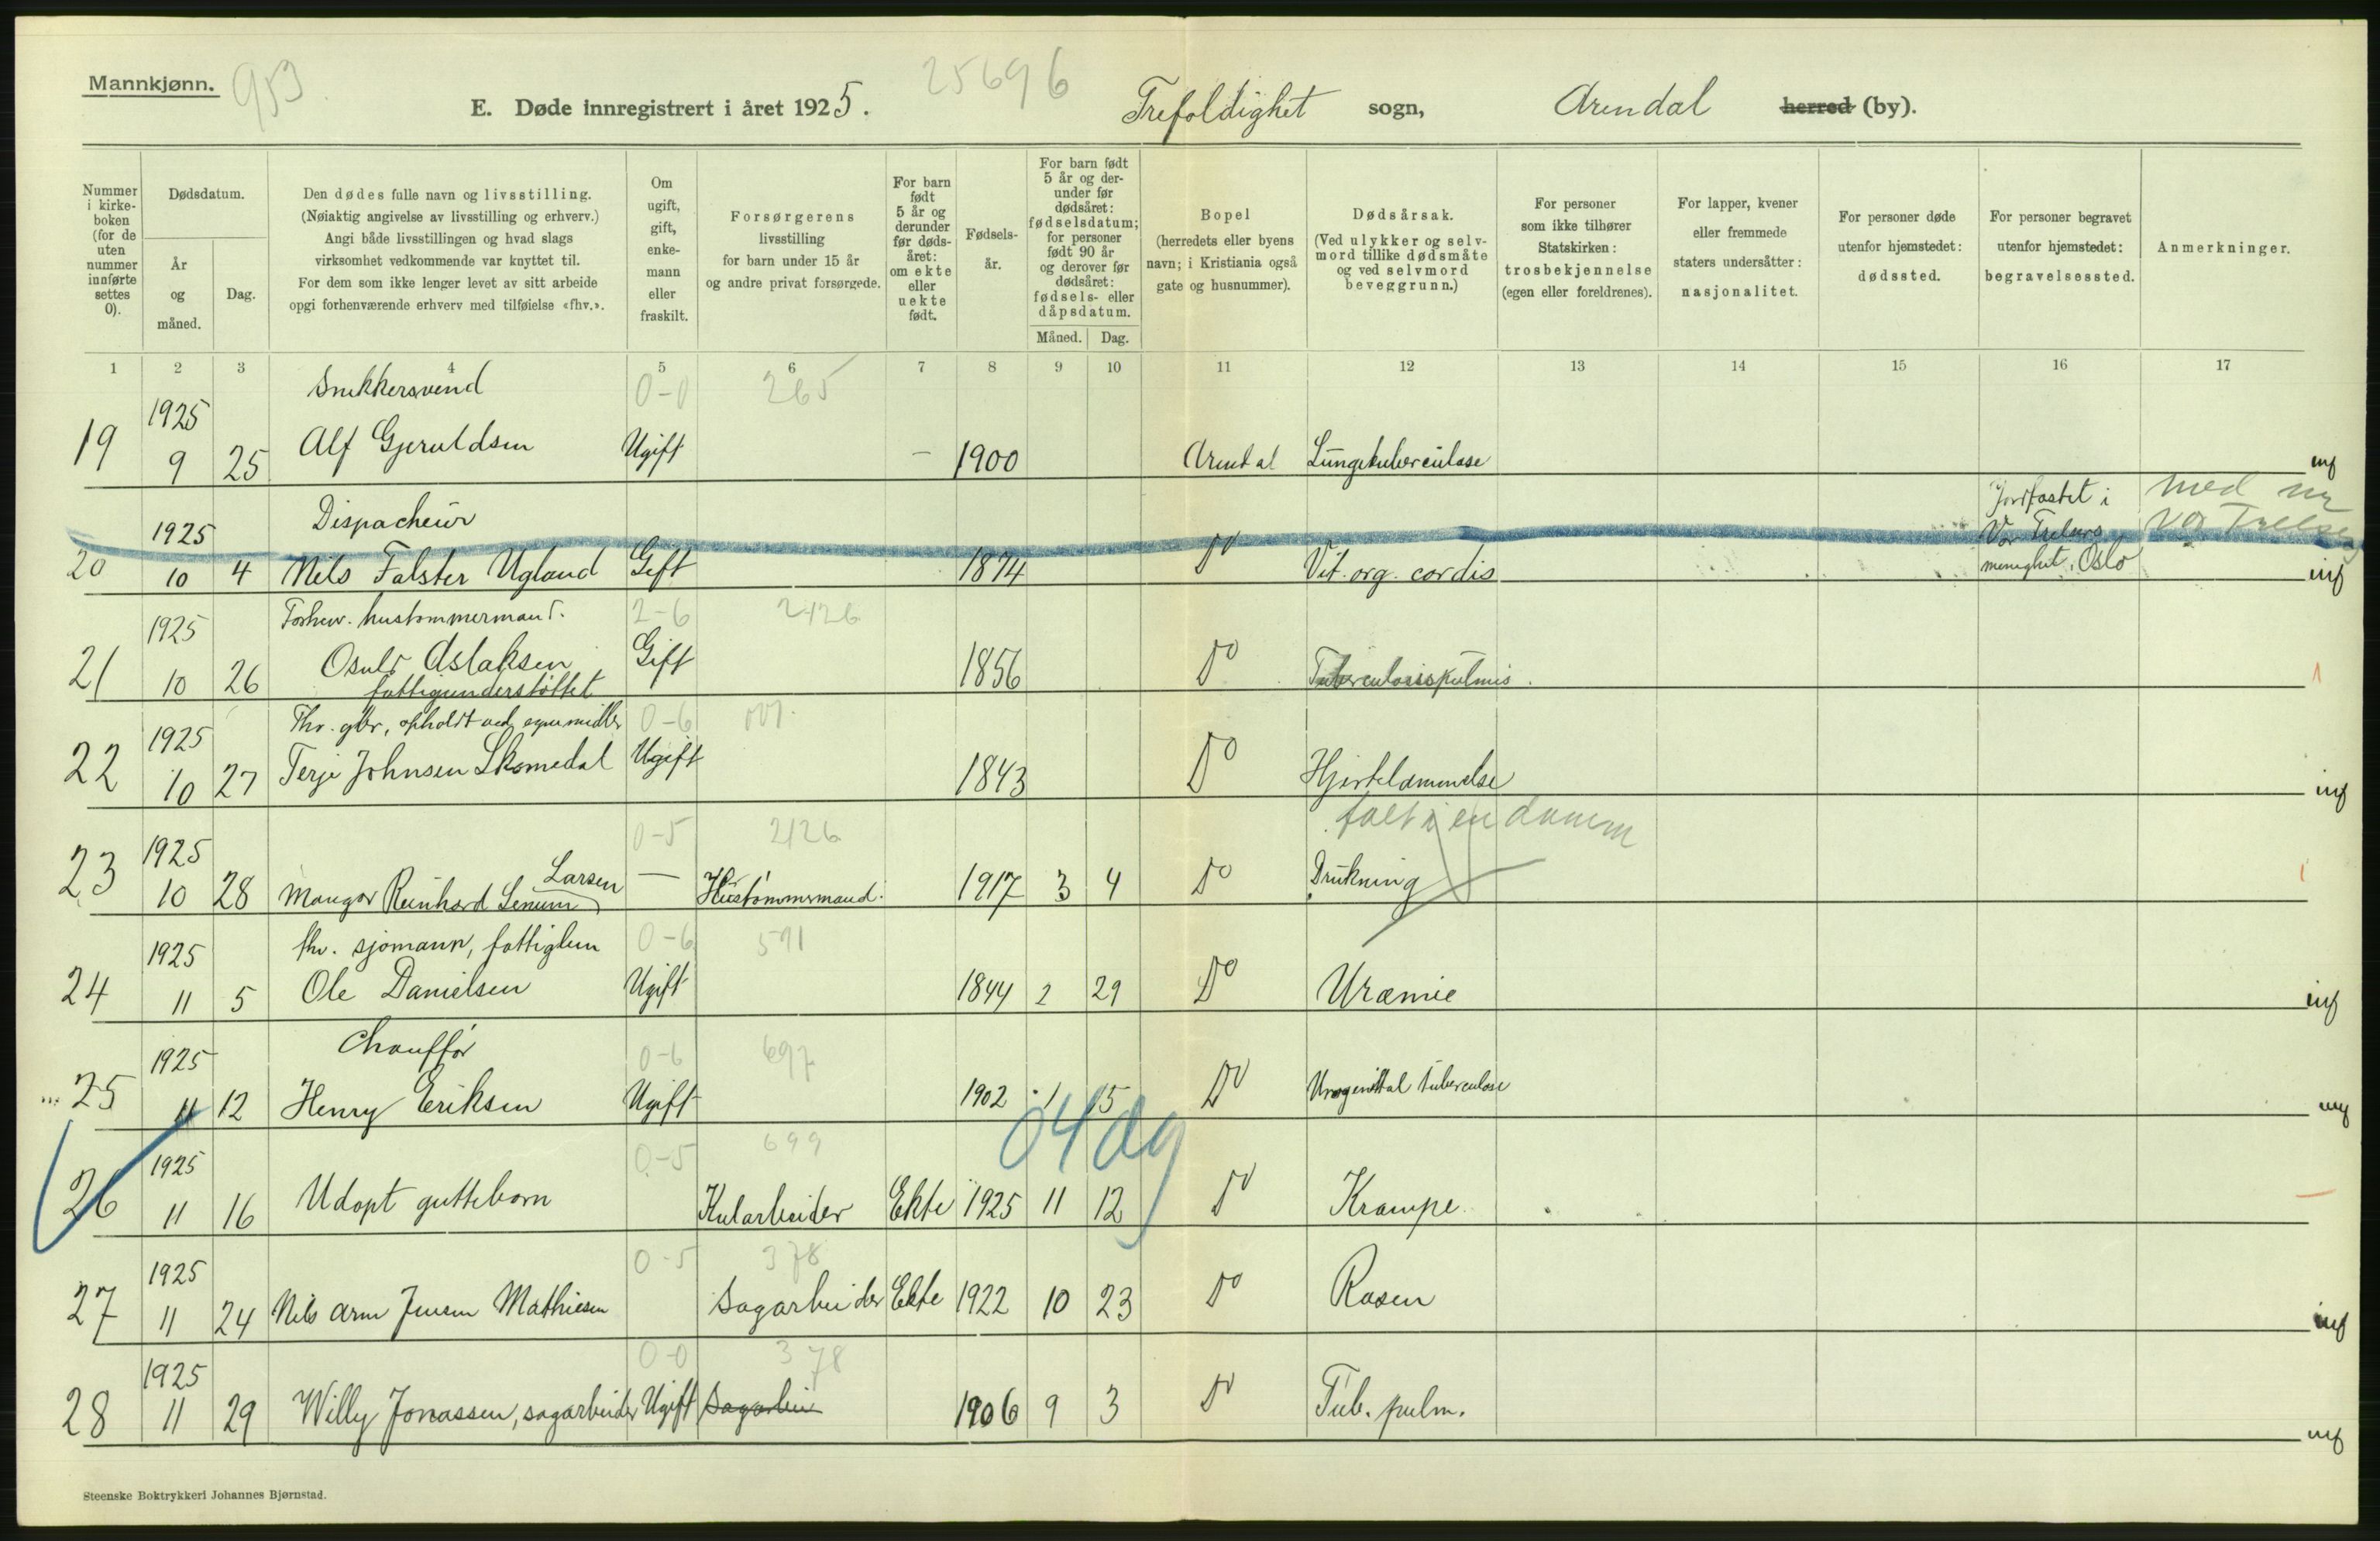 Mannkjønn.
953.
25696
E. Døde innregistrert i året 1925.
Trefoldighet sogn, Arendal herred (by).
Nummer i kirke-boken (for de uten nummer innførte settes 0).
Dødsdatum.
År og måned.
Dag.
Den dødes fulle navn og livsstilling.
(Nøiaktig angivelse av livsstilling og erhverv.)
Angi både livsstillingen og hvad slags
virksomhet vedkommende var knyttet til.
For dem som ikke lenger levet av sitt arbeide
opgi forhenværende erhverv med tilføielse «fhv.».
Om ugift, gift, enke-mann eller fraskilt.
Forsørgerens
livsstilling
for barn under 15 år
og andre privat forsørgede.
For barn født 5 år og derunder før døds-året: om ekte eller uekte født.
Fødsels-år.
For barn født 5 år og der-under før dødsåret: fødselsdatum; for personer født 90 år og derover før dødsåret: fødsels- eller dåpsdatum.
Måned. Dag.
Bopel
(herredets eller byens
navn; i Kristiania også
gate og husnummer).
Dødsårsak.
(Ved ulykker og selv-
mord tillike dødsmåte
og ved selvmord
beveggrunn.)
For personer
som ikke tilhører
Statskirken:
trosbekjennelse
(egen eller foreldrenes).
For lapper, kvener
eller fremmede
staters undersåtter:
nasjonalitet.
For personer døde
utenfor hjemstedet:
dødssted.
For personer begravet
utenfor hjemstedet:
begravelsessted.
Anmerkninger.
1 2 3 4 5 6 7 8 9 10 11 12 13 14 15 16 17
Snekkersvend 0-0 265
1925
19 9 25 Alf Gjeruldsen Ugift — 1900 Arendal Lungetuberculose
Dispacheur Jordfastet i med
1925 Vor Frelsers Vor Frelse
20 10 4 Nils Falster Ugland Gift 1874 Do Vit. org. cordis menighet, Oslo
Forhenv. hustømmermand. 2-6 2126
1925
21 10 26 Osuld Aslaksen Gift 1856 Do Tuberculosis pulmis. 1
fattigunderstøttet
Fhv. gbr, opholdt ved egne midler 0-6
1925
22 10 27 Terje Johnsen Skomedal Ugift 1843 Do Hjertelammelse
0-5 2126 falt i en damm
1925 Larsen
23 10 28 Mangor Reinhard Lenum — Hustømmermand. 1917 3 4 Do Drukning 1
fhv. sjømann, fattiglem 0-6 591
1925
24 11 5 Ole Danielsen Ugift 1844 2 29 Do Uræmie
Chauffør 0-6 697
1925
25 11 12 Henry Eriksen Ugift 1902 1 15 Do Urogenital tuberculose
04 dg
0-5 699
1925
26 11 16 Udøpt guttebarn Kularbeider Ekte 1925 11 12 Do Krampe
0-5 378
1925
27 11 24 Nils Arne Jensen Mathiesen Sagarbeider Ekte 1922 10 23 Do Rosen
0-0 378
1925
28 11 29 Willy Jonassen, sagarbeider Ugift Sagarbei 1906 9 3 Do Tub. pulm.
Steenske Boktrykkeri Johannes Bjørnstad.